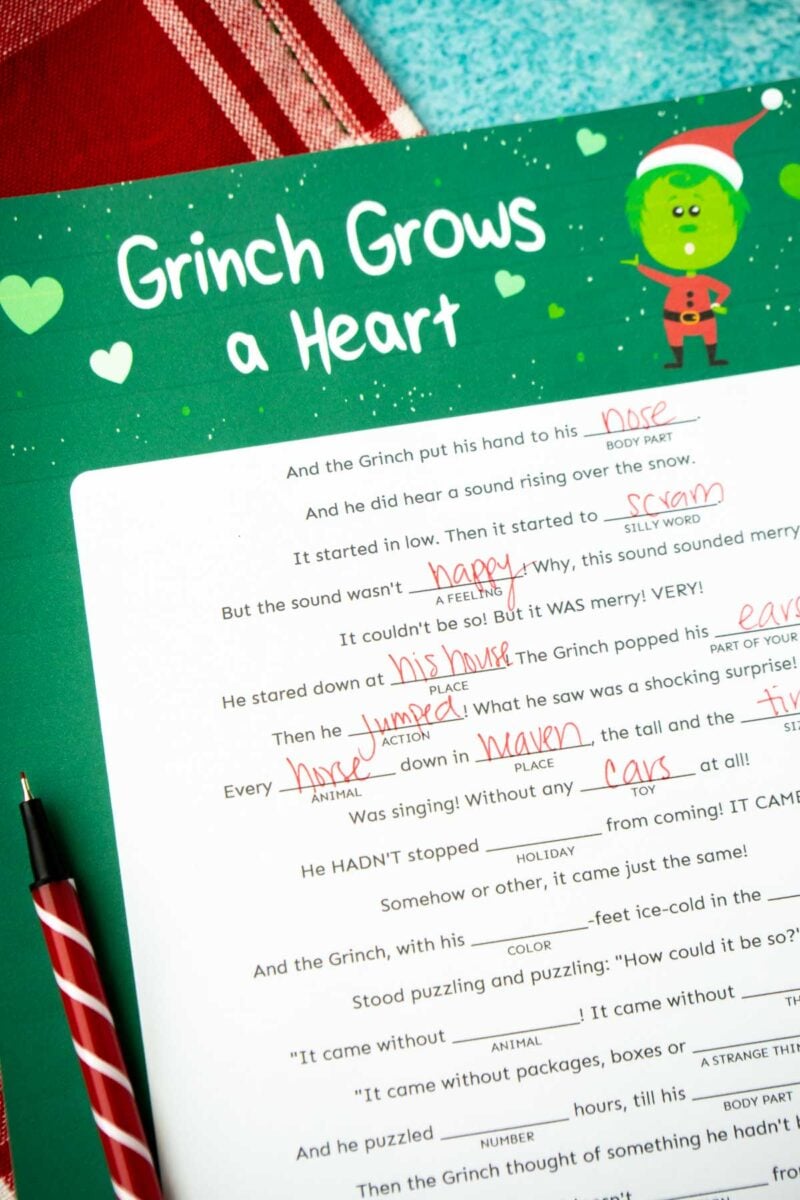 Grinch Grows
a Heart
And the Grinch put his hand to his nose.
BODY PART
And he did hear a sound rising over the snow.
It started in low. Then it started to scram.
SILLY WORD
But the sound wasn't happy! Why, this sound sounded merry
A FEELING
It couldn't be so! But it WAS merry! VERY!
He stared down at his house! The Grinch popped his ears
PLACE PART OF YOUR
Then he Jumped! What he saw was a shocking surprise!
ACTION
Every horse down in heaven, the tall and the
ANIMAL PLACE
Was singing! Without any cars at all!
TOY
He HADN'T stopped ____ from coming! IT CAME
HOLIDAY
Somehow or other, it came just the same!
And the Grinch, with his ____-feet ice-cold in the ____
COLOR
Stood puzzling and puzzling: "How could it be so?"
"It came without ____! It came without ____
ANIMAL
"It came without packages, boxes or ____
A STRANGE
And he puzzled ____ hours, till his ____
NUMBER BODY PART
Then the Grinch thought of something he hadn't